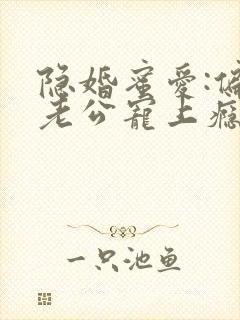 隐婚蜜爱:偏
老公宠上瘾
一只池鱼